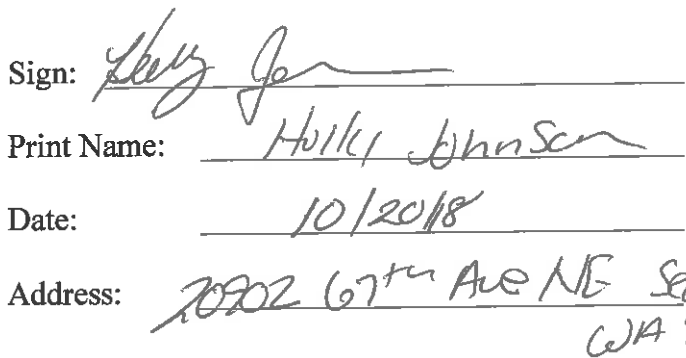 Sign:
Print Name: Holly Johnson
Date: 10/20/18
Address: 20902 67th Ave NE
WA